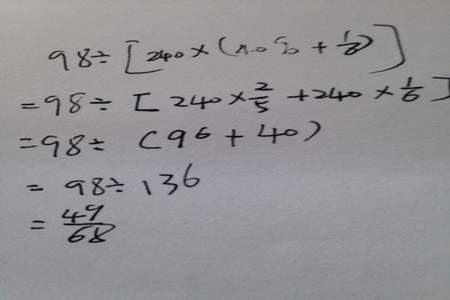 98÷[240×(40%+1/6)]
=98÷[240×2/5+240×1/6]
=98÷(96+40)
=98÷136
=49/68